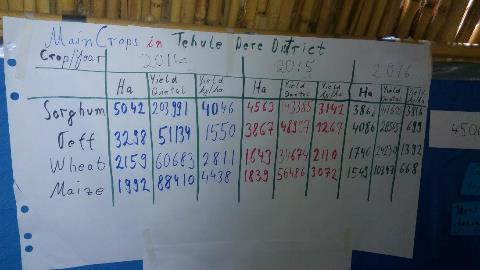 Main Crops in Tehule Dere District
Crop/Year 2014 2015 2016
Ha Yield Quintal Yield Kg/ha Ha Yield Quintal Yield Kg/ha Ha Yield Quintal Yield Kg/ha
Sorghum 5042 203991 4046 4563 143385 3142 3816
Teff 3298 51134 1550 3867 1267 4086 699
Wheat 2159 60683 2811 1643 34674 2110 1740 24230 1392
Maize 1992 88410 4438 1839 56486 3072 1549 668
450